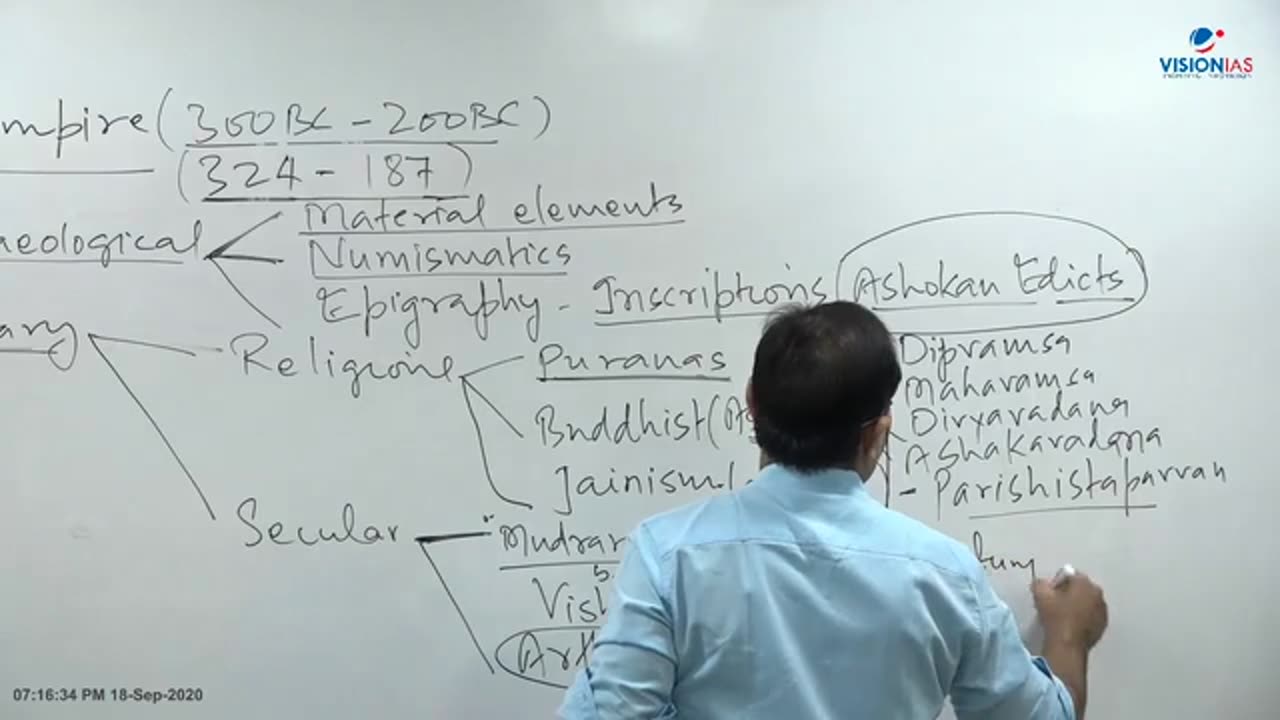 VISIONIAS
mpire (300BC - 200BC)
(324 - 187)
aeological
Material elements
Numismatics
Epigraphy - Inscriptions (Ashokan Edicts)
ary
Religione
Puranas
Dipramsa
Maharamsa
Buddhist (As
Divyavadana
Ashakaradana
Jainism
- Parishistaparvan
Secular
Mudrar
Vish
Arth
07:16:34 PM 18-Sep-2020